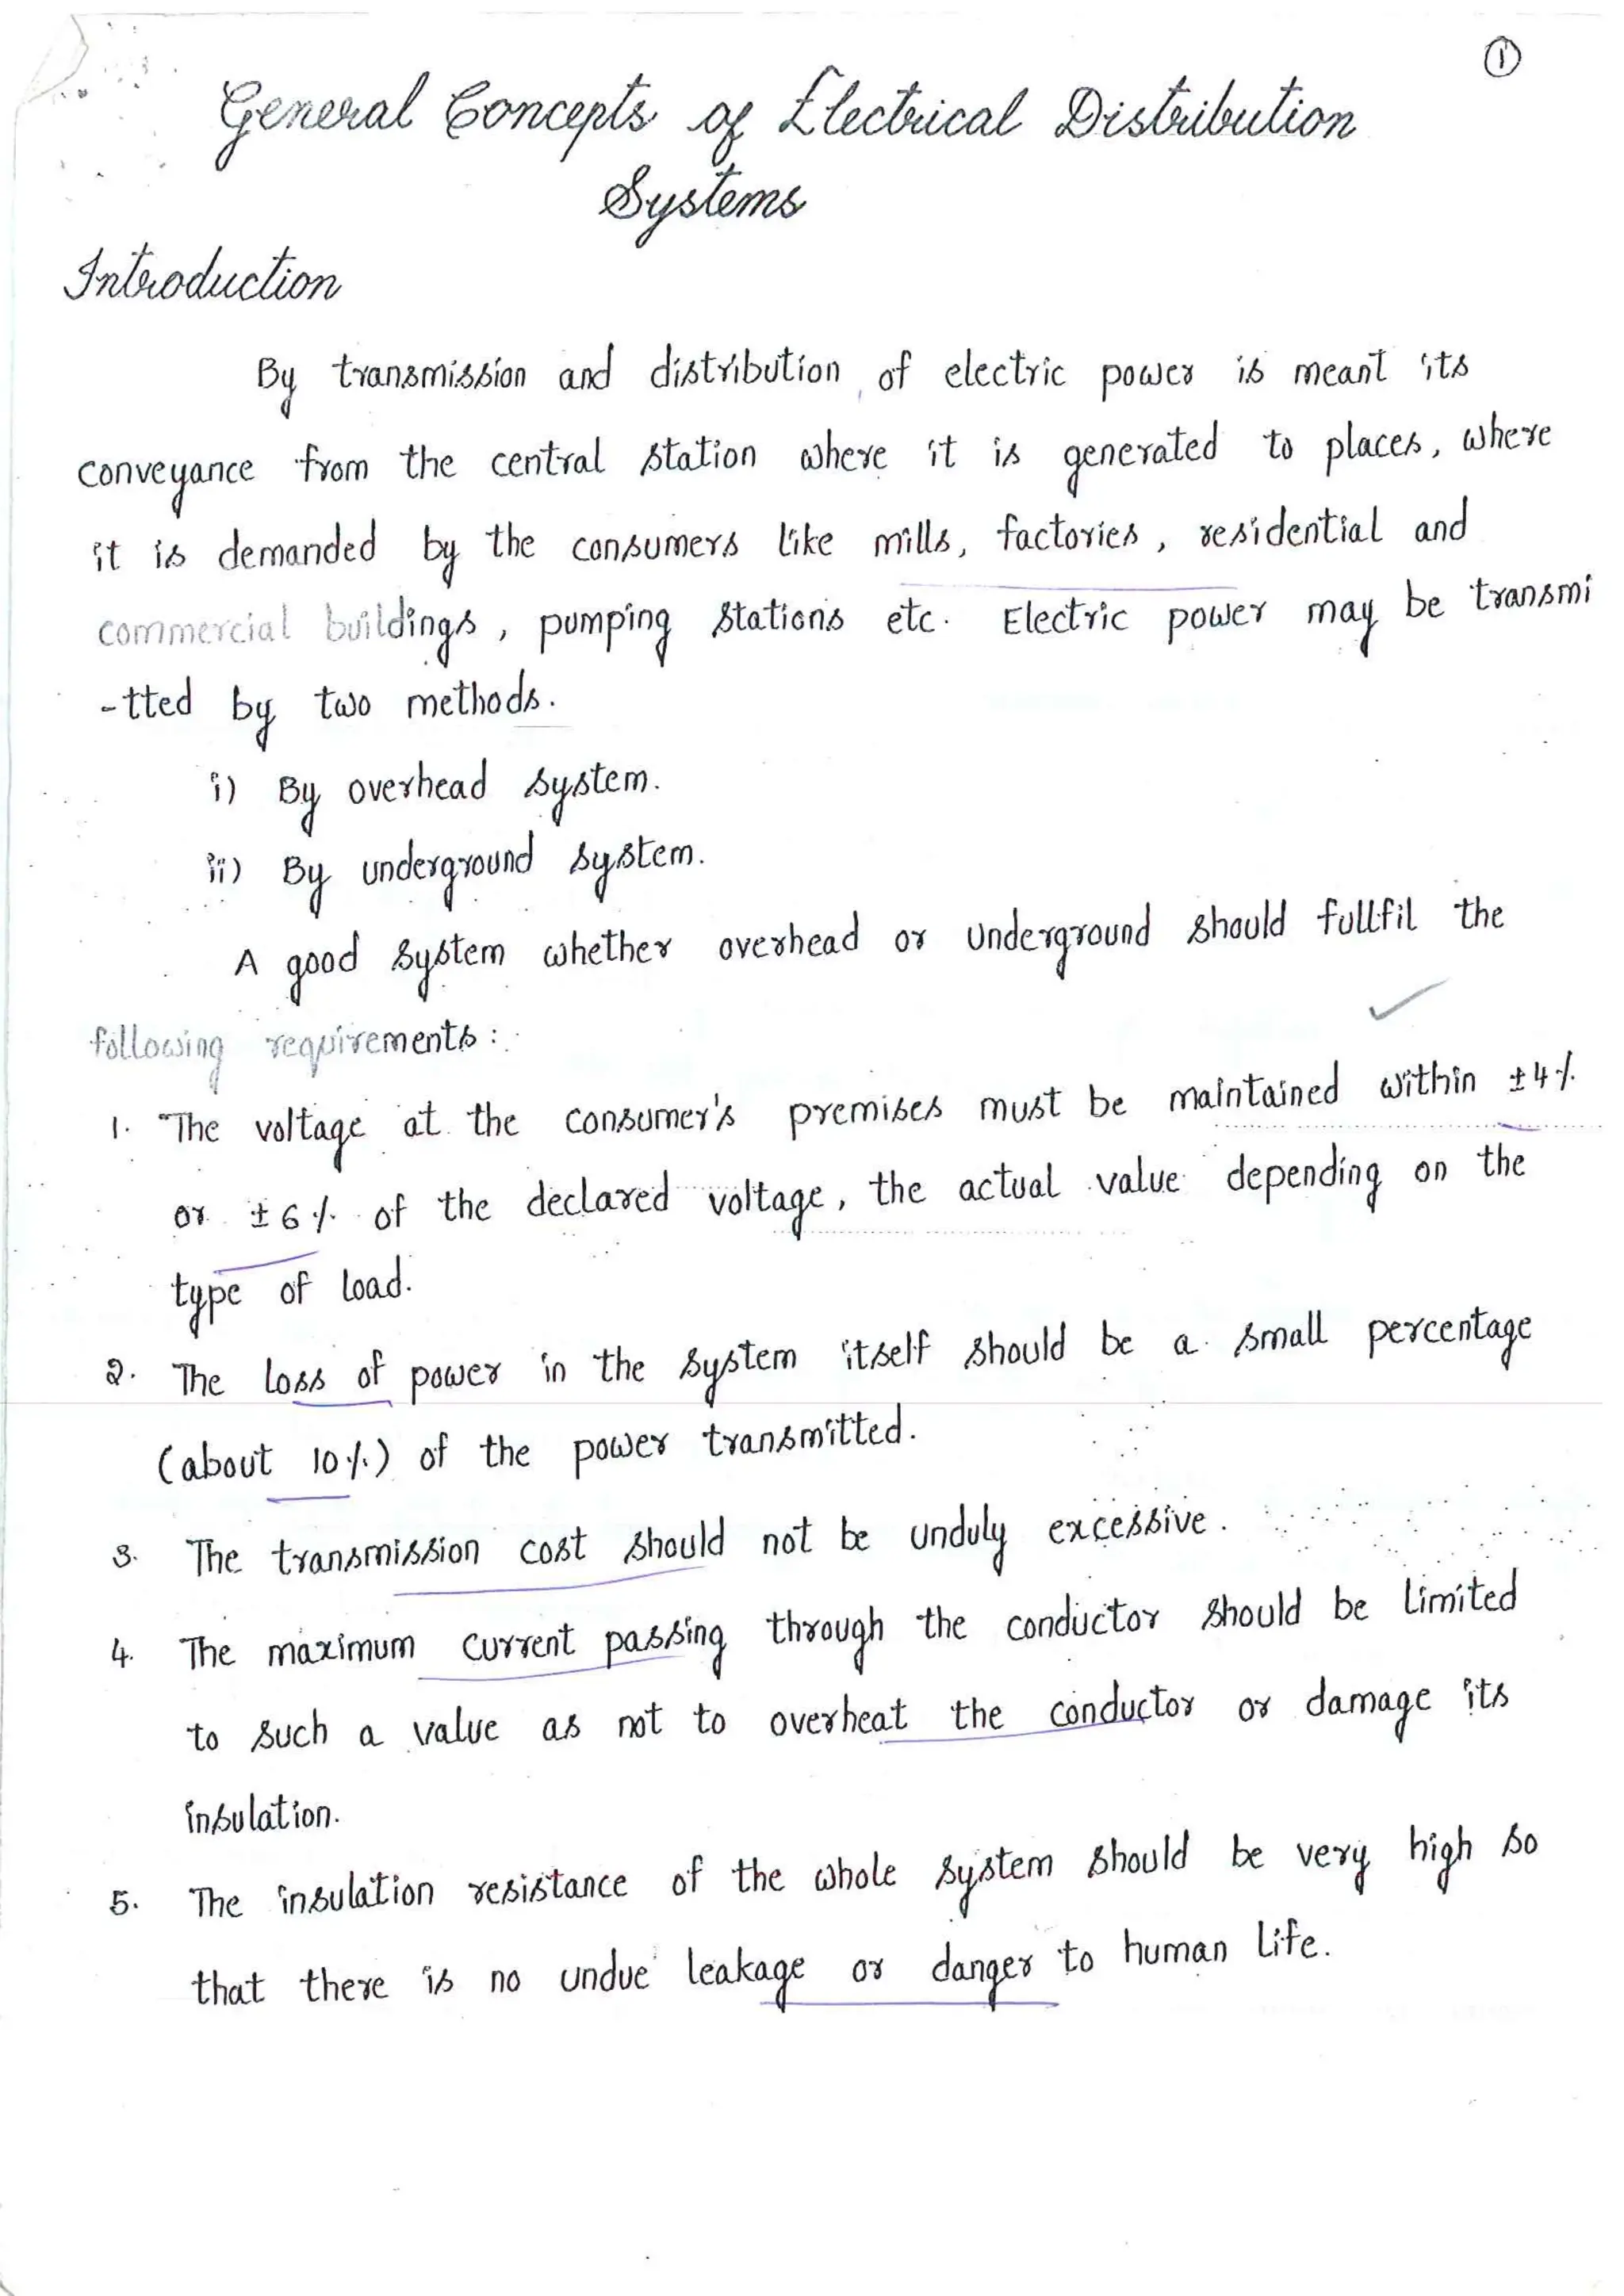 ①
General Concepts of Electrical Distribution
Systems
Introduction
By transmission and distribution of electric power is meant its
conveyance from the central station where it is generated to places, where
it is demanded by the consumers like mills, factories, residential and
commercial buildings, pumping stations etc. Electric power may be transmi
-tted by two methods.
i) By overhead system.
ii) By underground system.
A good system whether overhead or underground should fullfil the
following requirements:
1. The voltage at the consumer's premises must be maintained within ±4%
or ±6% of the declared voltage, the actual value depending on the
type of load.
2. The loss of power in the system itself should be a small percentage
(about 10%) of the power transmitted.
3. The transmission cost should not be unduly excessive.
4. The maximum current passing through the conductor should be limited
to such a value as not to overheat the conductor or damage its
insulation.
5. The insulation resistance of the whole system should be very high so
that there is no undue leakage or danger to human life.